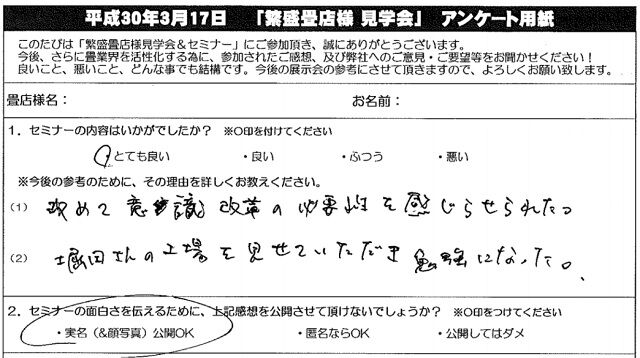 平成30年3月17日 「繁盛畳店様 見学会」 アンケート用紙
このたびは「繁盛畳店様見学会&セミナー」にご参加頂き、誠にありがとうございます。
今後、さらに畳業界を活性化する為に、参加されたご感想、及び弊社へのご意見・ご要望等をお聞かせください！
良いこと、悪いこと、どんな事でも結構です。今後の展示会の参考にさせて頂きますので、よろしくお願い致します。
畳店様名： お名前：
1．セミナーの内容はいかがでしたか？ ※〇印を付けてください
・とても良い ・良い ・ふつう ・悪い
※今後の参考のために、その理由を詳しくお教えください。
(1) 改めて意識改革の必要性を感じらせられたっ
(2) 堀田さんの工場を見せていただき勉強になった。
2．セミナーの面白さを伝えるために、上記感想を公開させて頂けないでしょうか？ ※〇印をつけてください
・実名（&顔写真）公開OK ・匿名ならOK ・公開してはダメ